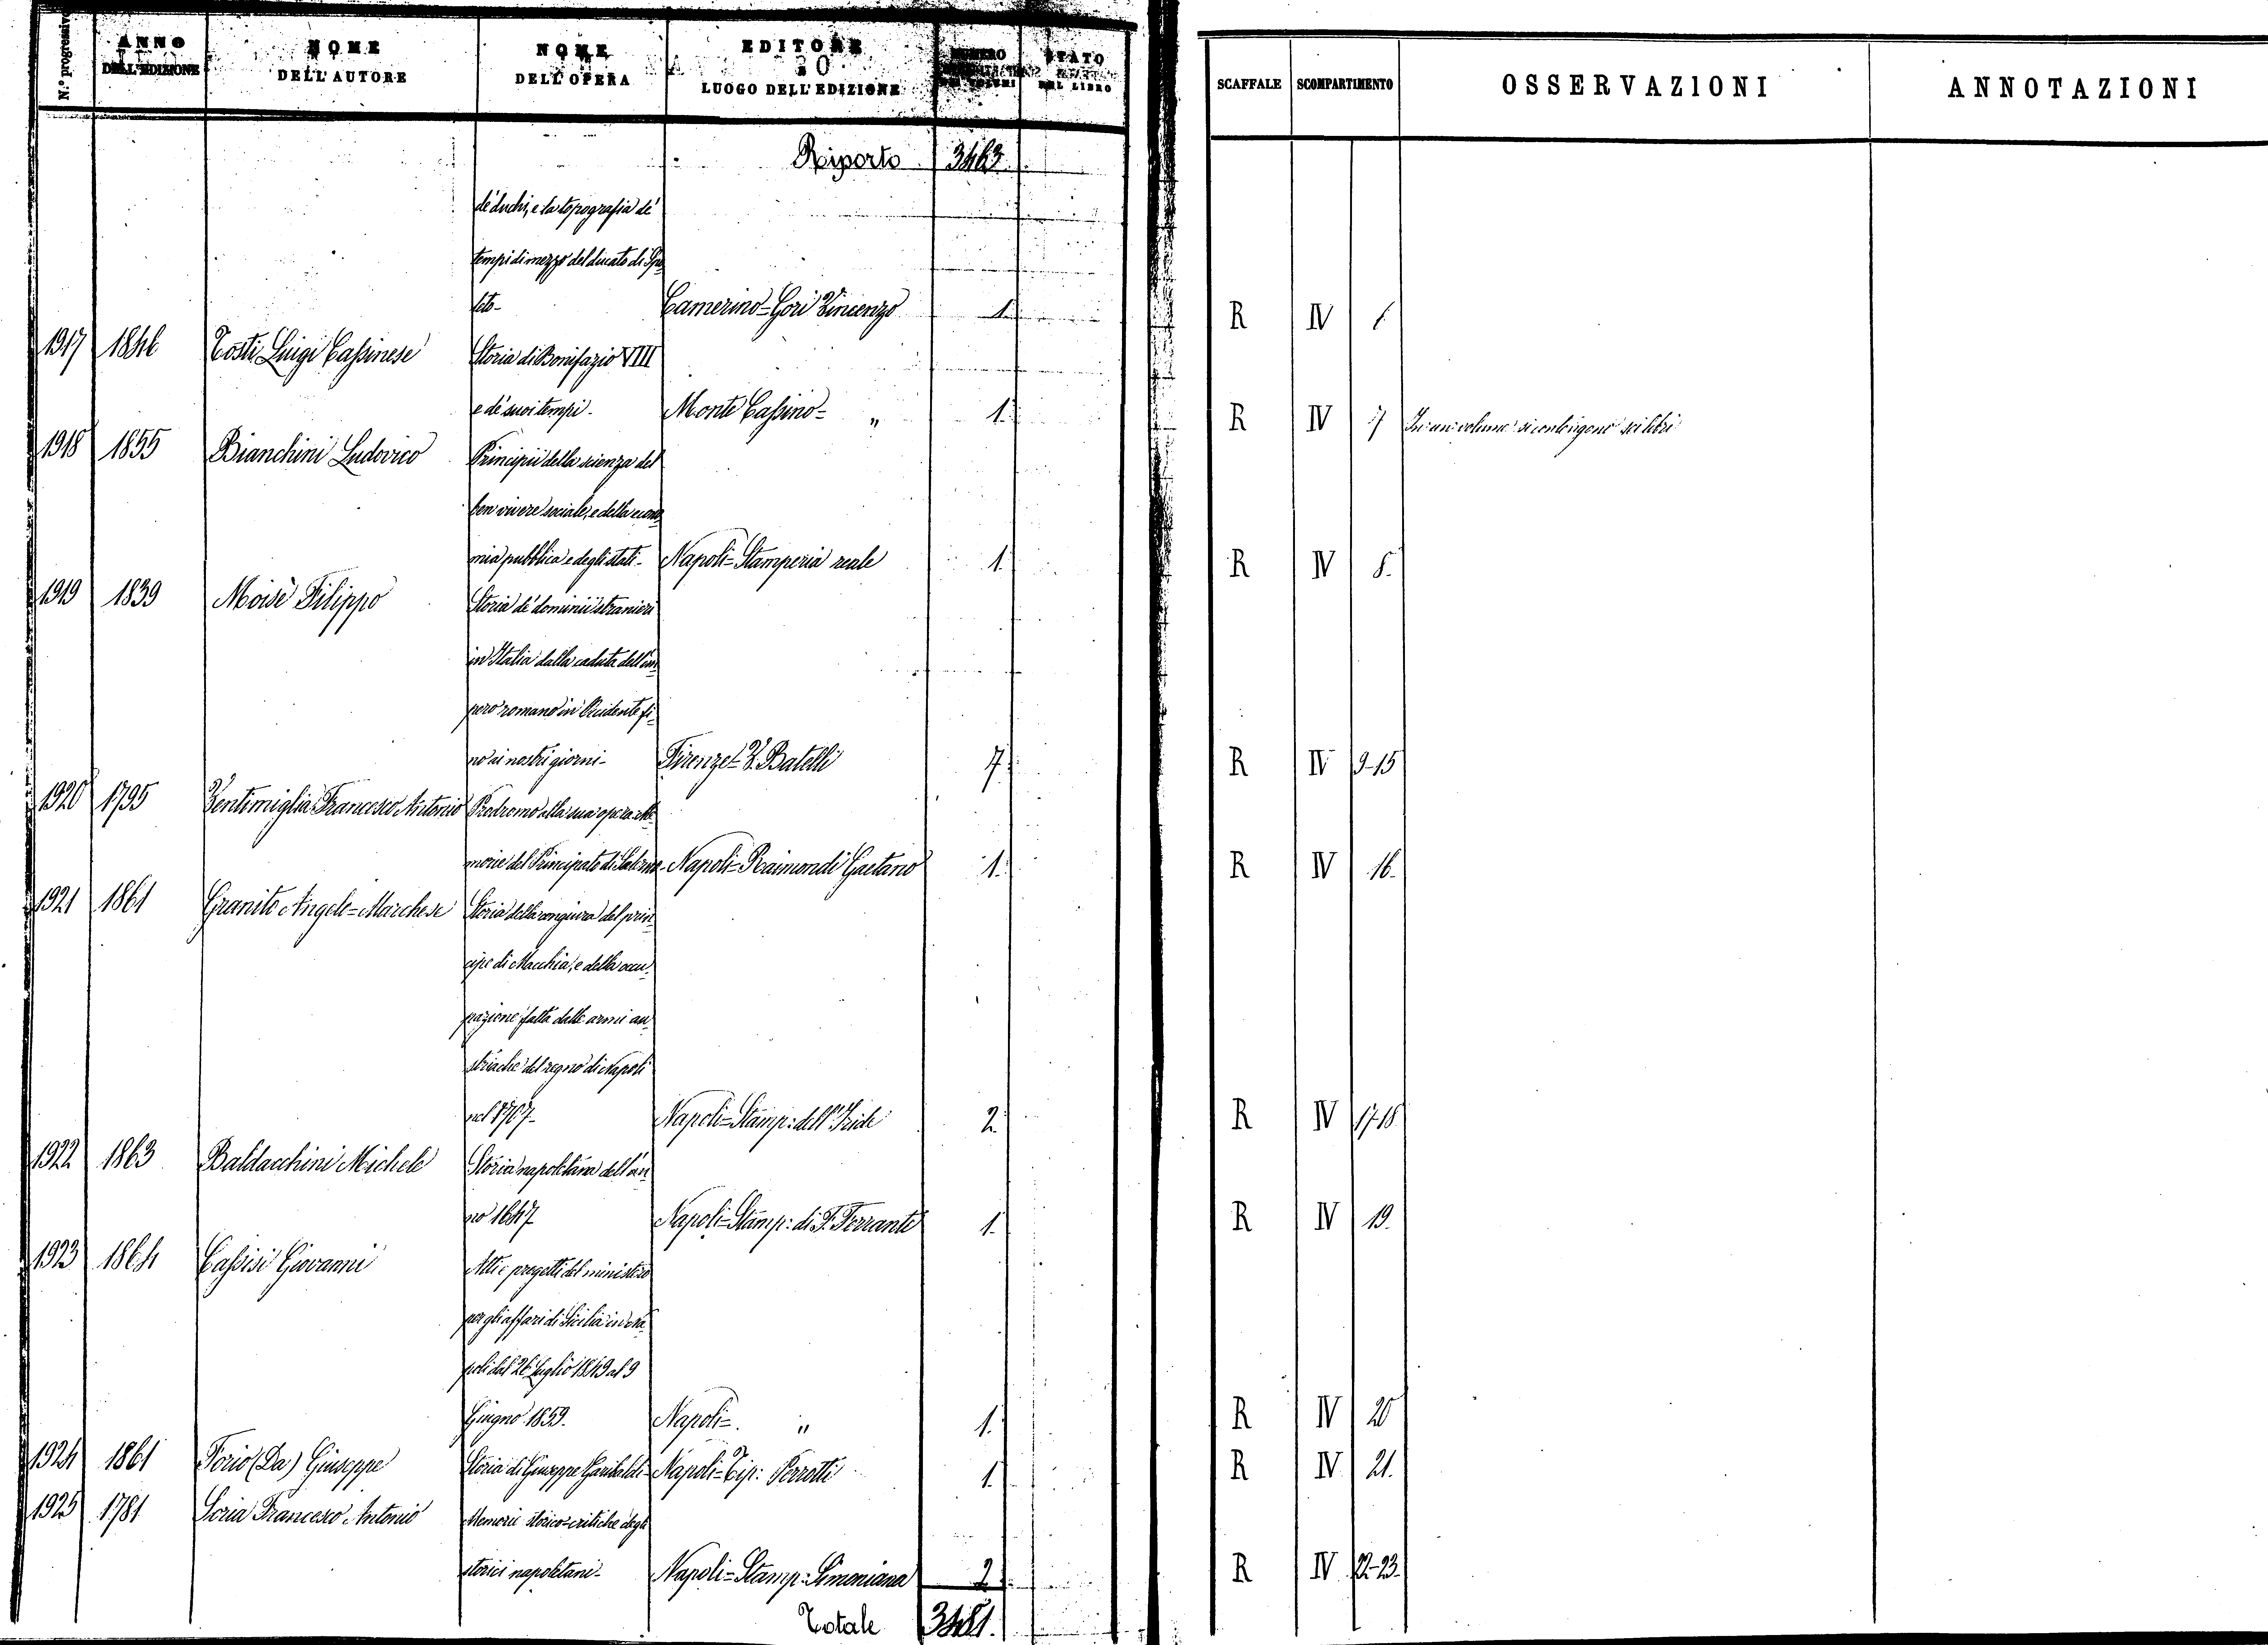 N.° progressivo ANNO DELL'EDIZIONE NOME DELL'AUTORE NOME DELL'OPERA EDITORE LUOGO DELL'EDIZIONE NUMERO STATO DEL LIBRO SCAFFALE SCOMPARTIMENTO OSSERVAZIONI ANNOTAZIONI
Riporto 3463
de' duchi, e la topografia de'
tempi di mezzo del ducato di Spo
leto- Camerino=Gori Vincenzo 1. R IV
1917 1846 Tosti Luigi Cassinese Storia di Bonifazio VIII
e de' suoi tempi- Monte Cassino= " 1. R IV 7 In un volume si contengono sei libri
1918 1855 Bianchini Ludovico Principii della scienza del
ben vivere sociale, e della econo
mia pubblica e degli stati- Napoli=Stamperia reale 1. R IV 8.
1919 1839 Moisè Filippo Storia de' dominii stranieri
in Italia dalla caduta dell'im
pero romano in Occidente fi-
no ai nostri giorni- Firenze= V. Batelli 7. R IV 9-15
1920 1795 Ventimiglia Francesco Antonio Prodromo alla sua opera: Me
morie del Principato di Salerno- Napoli=Raimondi Gaetano 1. R IV 16.
1921 1861 Granito Angelo=Marchese Storia della congiura del prin
cipe di Macchia, e della occu-
pazione fatta dalle armi au
striache del regno di Napoli
nel 1707- Napoli=Stamp: dell'Iride 2. R IV 17-18.
1922 1863 Baldacchini Michele Storia napoletana dell'an
no 1647 Napoli=Stamp: di F. Ferrante 1. R IV 19.
1923 1864 Cassisi Giovanni Atti e progetti del ministero
per gli affari di Sicilia in Na
poli dal 26 Luglio 1849 al 9
Giugno 1859. Napoli=. " 1. R IV 20
1924 1861 Forio (Da) Giuseppe Storia di Giuseppe Garibaldi- Napoli=Tip: Perrotti 1. R IV 21.
1925 1781 Soria Francesco Antonio Memorie storico=critiche degli
storici napoletani- Napoli=Stamp: Simoniana 2. R IV 22-23.
Totale 3481.